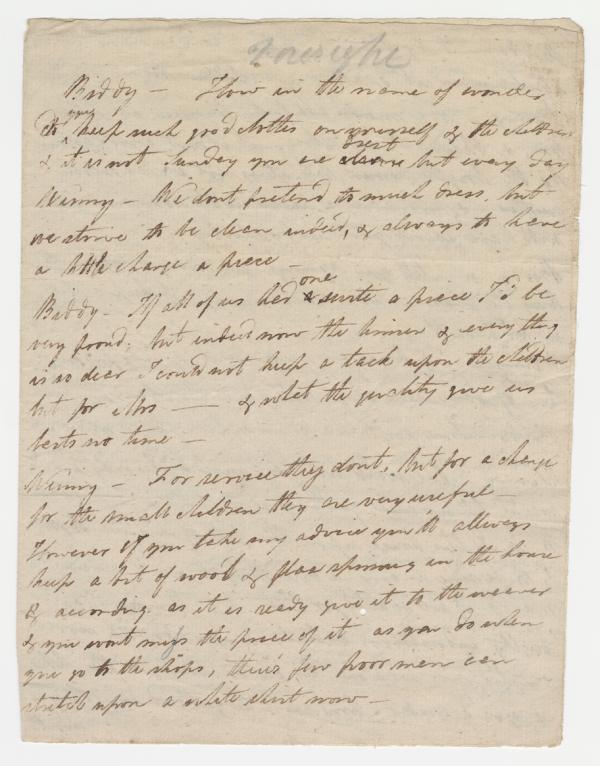 Foresight
Biddy — How in the name of wonder
do you keep such good clothes on yourself & the children
& it is not Sunday you are drest but every day
Winny — We dont pretend to much dress, but
we strive to be clean indeed, & always to have
a little change a piece —
Biddy — If all of us had one suite a piece I'd be
very proud, but indeed now the linnen & every thing
is so dear I could not keep a tack upon the children
but for Mrs — & what the quality give us
lasts no time —
Winny — For service they dont, but for a change
for the small children they are very useful —
However If you take my advice you'll allways
keep a bit of wool & flax spinning in the house
& according as it is ready give it to the weaver
& you wont miss the price of it as you do when
you go to the shops, there's few poor men can
stretch upon a white shirt now —